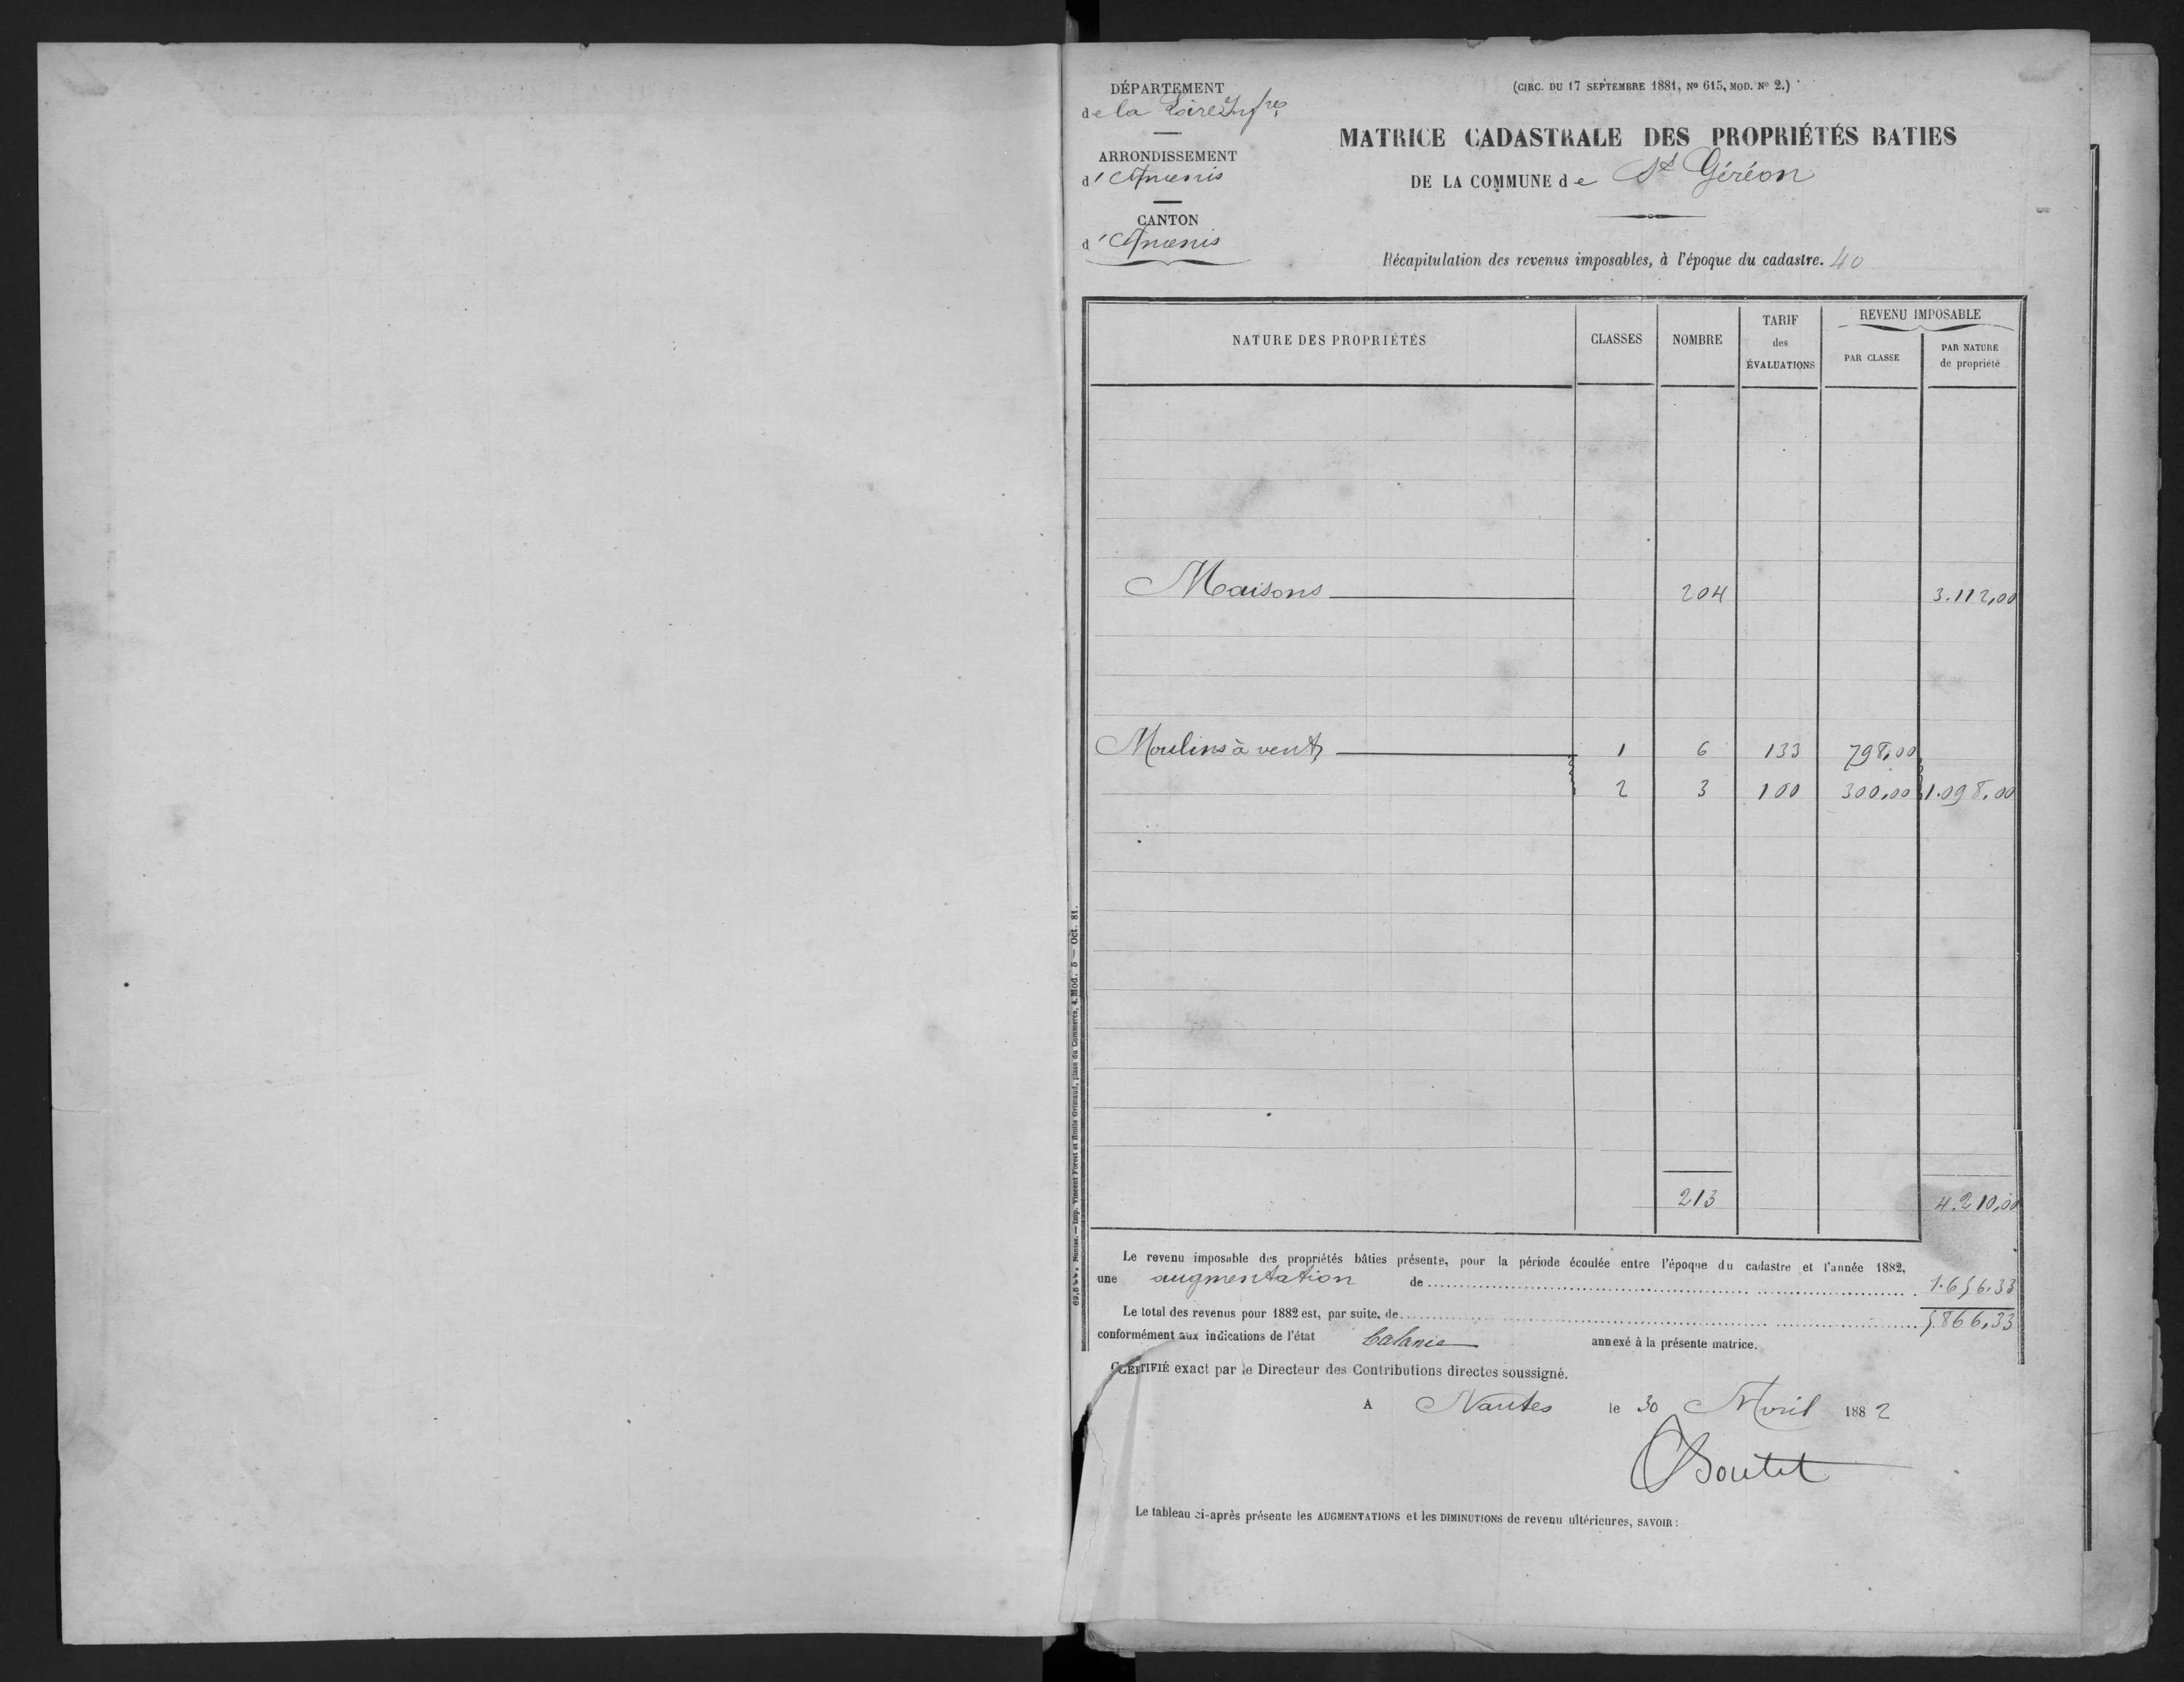 DÉPARTEMENT
de la Loire Infre
ARRONDISSEMENT
d'Ancenis
CANTON
d'Ancenis
(CIRC. DU 17 SEPTEMBRE 1881, No 615, MOD. No 2.)
MATRICE CADASTRALE DES PROPRIÉTÉS BATIES
DE LA COMMUNE de St Géréon
Récapitulation des revenus imposables, à l'époque du cadastre. 40
NATURE DES PROPRIÉTÉS CLASSES NOMBRE TARIF des ÉVALUATIONS REVENU IMPOSABLE PAR CLASSE PAR NATURE de propriété
Maisons 204 3.112,00
Moulins à vent 1 6 133 798,00
2 3 100 300,00 1.098,00
213 4.210,00
Le revenu imposable des propriétés bâties présente, pour la période écoulée entre l'époque du cadastre et l'année 1882,
une augmentation de 1.656,33
Le total des revenus pour 1882 est, par suite, de 5.866,33
conformément aux indications de l'état balance annexé à la présente matrice.
CERTIFIÉ exact par le Directeur des Contributions directes soussigné.
A Nantes le 30 Avril 1882
Boutet
Le tableau ci-après présente les AUGMENTATIONS et les DIMINUTIONS de revenu ultérieures, SAVOIR :
Nantes. — Imp. Vincent Forest et Emile Grimaud, place du Commerce, 4. Mod. 5 — Oct. 81.